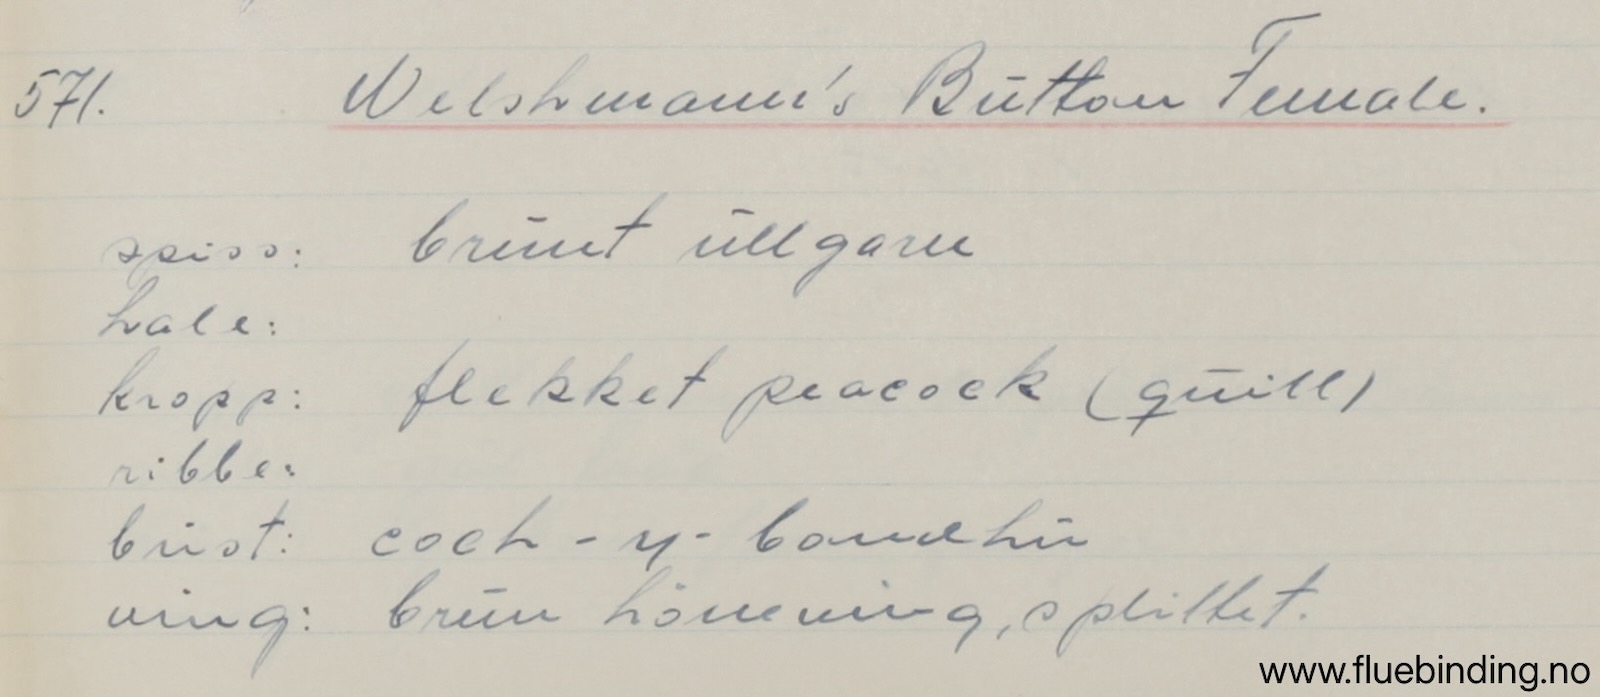 571. Welshmann's Button Female.
spiss: brunt ullgarn
hale:
kropp: flekket peacock (quill)
ribbe:
brist: coch-y-bondhu
ving: brun hönneving, splittet.
www.fluebinding.no